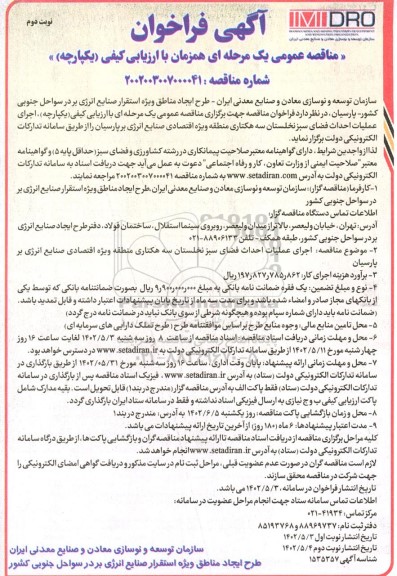 IMIDRO
سازمان توسعه و نوسازی معادن و صنایع معدنی ایران
نوبت دوم
آگهی فراخوان
« مناقصه عمومی یک مرحله ای همزمان با ارزیابی کیفی (یکپارچه) »
شماره مناقصه : ۲۰۰۲۰۰۳۰۰۷۰۰۰۰۴۱
سازمان توسعه و نوسازی معادن و صنایع معدنی ایران - طرح ایجاد مناطق ویژه استقرار صنایع انرژی بر در سواحل جنوبی
کشور- پارسیان، در نظر دارد فراخوان مناقصه جهت برگزاری مناقصه عمومی یک مرحله ای با ارزیابی کیفی(یکپارچه)، اجرای
عملیات احداث فضای سبز نخلستان سه هکتاری منطقه ویژه اقتصادی صنایع انرژی بر پارسیان را از طریق سامانه تدارکات
الکترونیکی دولت برگزار نماید.
لذا از واجدین شرایط ، دارای گواهینامه معتبر صلاحیت پیمانکاری در رشته کشاورزی و فضای سبز؛ حداقل پایه ۵؛ و گواهینامه
معتبر"صلاحیت ایمنی از وزارت تعاون، کار و رفاه اجتماعی" دعوت به عمل می‌آید جهت دریافت اسناد به سامانه تدارکات
الکترونیکی دولت به آدرس www.setadiran.com به شماره مناقصه ۲۰۰۲۰۰۳۰۰۷۰۰۰۰۴۱ مراجعه نمایند.
۱-کارفرما/ مناقصه گزار: سازمان توسعه و نوسازی معادن و صنایع معدنی ایران-طرح ایجاد مناطق ویژه استقرار صنایع انرژی بر
در سواحل جنوبی کشور
اطلاعات تماس دستگاه مناقصه گزار:
آدرس: تهران، خیابان ولیعصر، بالاتر از میدان ولیعصر، روبروی سینما استقلال، ساختمان فولاد، دفتر طرح ایجاد صنایع انرژی
بر در سواحل جنوبی کشور، طبقه همکف - تلفن: ۸۸۹۰۶۱۳۳-۰۲۱
۲- موضوع مناقصه: اجرای عملیات احداث فضای سبز نخلستان سه هکتاری منطقه ویژه اقتصادی صنایع انرژی بر
پارسیان
۳- برآورد هزینه اجرای کار: ۱۹۷٫۸۲۷٫۷۸۵٫۸۶۲ ریال
۴- نوع و مبلغ تضمین: یک فقره ضمانت نامه بانکی به مبلغ ۹٫۹۰۰٫۰۰۰٫۰۰۰ ریال بصورت ضمانتنامه بانکی که توسط یکی
از بانکهای مجاز صادر و امضاء شده باشد و برای مدت سه ماه از تاریخ پایان پیشنهادات اعتبار داشته و قابل تمدید باشد.
(ضمانت نامه باید دارای شماره سپام بوده و هیچگونه شرطی از سوی بانک نباید در ضمانت نامه درج گردد)
۵- محل تامین منابع مالی: وجوه منابع طرح بر اساس موافقتنامه طرح ( طرح تملک دارایی های سرمایه ای)
۶- محل و مهلت زمانی دریافت اسناد مناقصه: اسناد مناقصه از ساعت ۸ روز سه شنبه ۱۴۰۲/۵/۳ لغایت ساعت ۱۶ روز
چهارشنبه مورخ ۱۴۰۲/۵/۱۱ از طریق سامانه تدارکات الکترونیکی دولت به www.setadiran.ir در دسترس خواهد بود.
۷- محل و مهلت زمانی ارائه پیشنهاد: پایان وقت اداری، ساعت ۱۶ روز سه شنبه مورخ ۱۴۰۲/۵/۳۱ از طریق بارگذاری در
سامانه تدارکات الکترونیکی دولت (ستاد) به آدرس www.setadiran.ir ، فیزیک اسناد مناقصه پس از بارگذاری در سامانه
تدارکات الکترونیکی دولت (ستاد): فقط پاکت الف به آدرس مناقصه گزار (مندرج در بند۱) قابل تحویل است. بقیه مدارک شامل
پاکت ارزیابی کیفی ب و ج نیازی به ارسال فیزیکی اسناد نداشته و فقط در سامانه ستاد ایران بارگذاری گردد.
۸- محل و زمان بازگشایی پاکت مناقصه: روز یکشنبه ۱۴۰۲/۶/۵ به آدرس: مندرج در بند۱
۹- مدت اعتبار پیشنهادها: ۶ ماه (۱۸۰ روز) از آخرین تاریخ ارائه پیشنهادات می باشد.
کلیه مراحل برگزاری مناقصه از دریافت اسناد مناقصه تا ارائه پیشنهاد مناقصه گران و بازگشایی پاکت ها، از طریق درگاه سامانه
تدارکات الکترونیکی دولت (ستاد) به آدرس www.setadiran.ir انجام خواهد شد.
لازم است مناقصه گران در صورت عدم عضویت قبلی، مراحل ثبت نام در سایت مذکور و دریافت گواهی امضای الکترونیکی را
جهت شرکت در مناقصه محقق سازند.
تاریخ انتشار فراخوان در سامانه، ۱۴۰۲/۵/۳ می باشد.
اطلاعات تماس سامانه ستاد جهت انجام مراحل عضویت در سامانه:
مرکز تماس: ۴۱۹۳۴-۰۲۱
دفتر ثبت نام: ۸۸۹۶۹۷۳۷ و ۸۵۱۹۳۷۶۸
تاریخ انتشار نوبت اول ۱۴۰۲/۵/۳
تاریخ انتشار نوبت دوم ۱۴۰۲/۵/۴
شناسه آگهی ۱۵۳۵۳۵۷
سازمان توسعه و نوسازی معادن و صنایع معدنی ایران
طرح ایجاد مناطق ویژه استقرار صنایع انرژی بر در سواحل جنوبی کشور